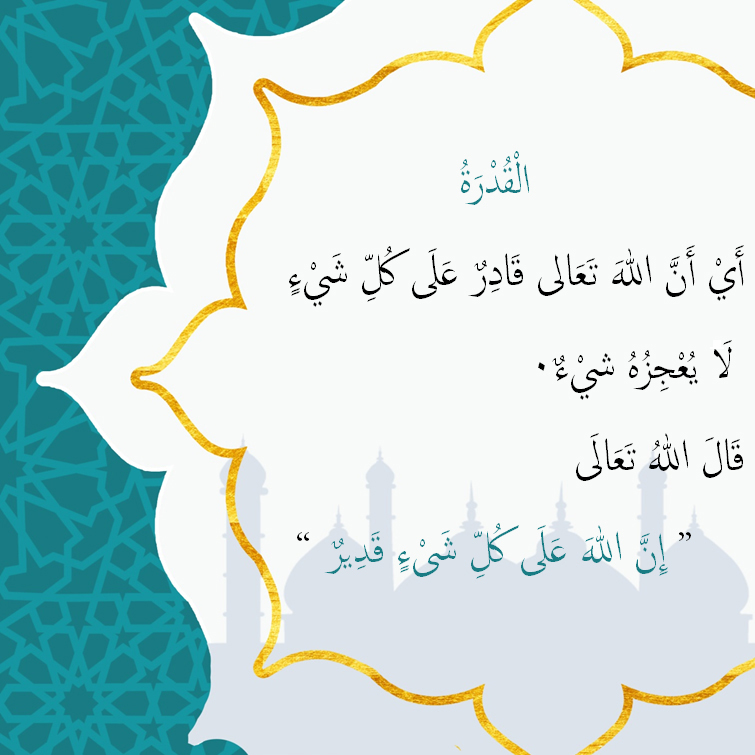 الْقُدْرَةُ
أَيْ أَنَّ اللهَ تَعَالى قَادِرٌ عَلَى كُلِّ شَيْءٍ
لَا يُعْجِزُهُ شيْءٌ.
قَالَ اللهُ تَعَالَى
” إِنَّ اللهَ عَلَى كُلِّ شَىْءٍ قَدِيرٌ “